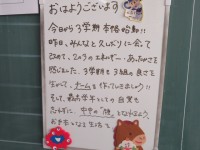 おはようございます
今日から3学期 本格始動!!
昨日、みんなと久しぶりに会って
改めて、2の3のエネルギー・あったかさを
感じました。3学期も3組の良さを
生かして、チームを作ってしましょう!!
そして、最高学年としての自覚を
お手本となる生活を